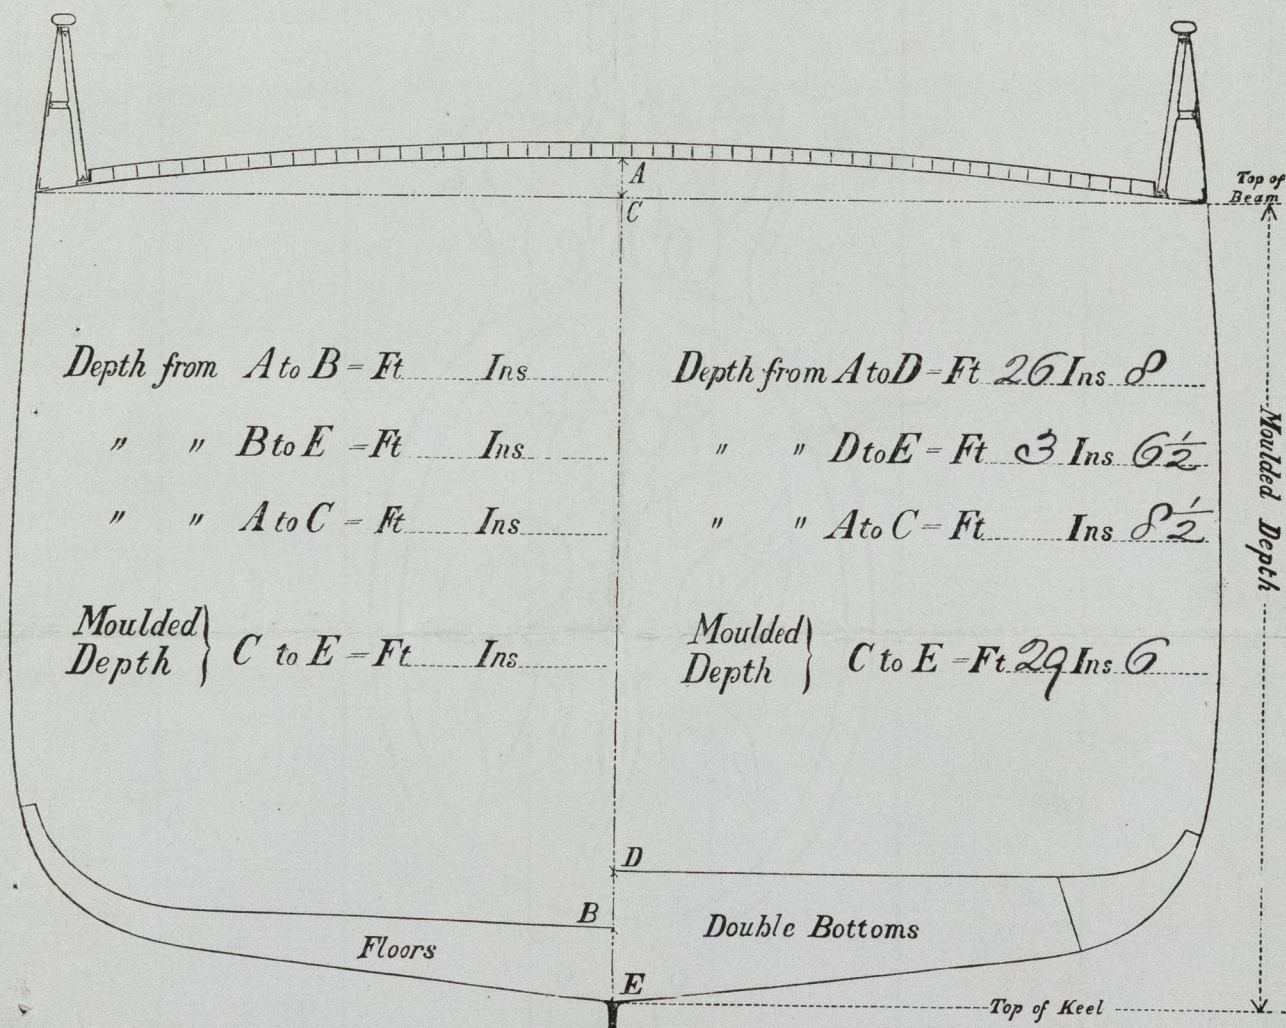 A
Top of
Beam
C
Depth from A to B = Ft Ins
" " B to E = Ft Ins
" " A to C = Ft Ins
Moulded
Depth } C to E = Ft Ins
Depth from A to D = Ft 26 Ins 8
" " D to E = Ft 3 Ins 6 1/2
" " A to C = Ft Ins 8 1/2
Moulded
Depth } C to E = Ft 29 Ins 6
Moulded Depth
D
B
Floors
Double Bottoms
E
Top of Keel